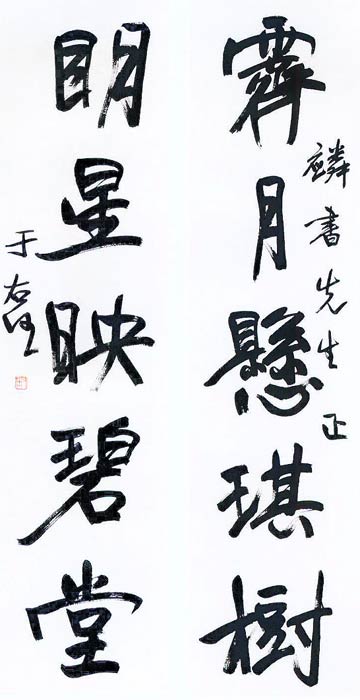 霽月懸琪樹
麟書先生正
明星映碧堂
于右任